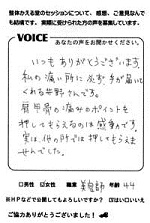 整体かえる堂のセッションについて、感想、ご意見なんで
も結構です。実際に受けられた方の声を募集しています。
VOICE
あなたの声をお聞かせください。
いつもありがとうございます。
私の痛い所に必ず手が届いて
くれる井野さんです。
肩甲骨の痛みのポイントを
押してもらえるのは感動です。
実は、他の所では押してもらえま
せんでした。
□男性 □女性 職業 美容師 年齢 44
※HPなどで公開してもよろしいですか? □はい□いいえ
ご協力ありがとうございました!